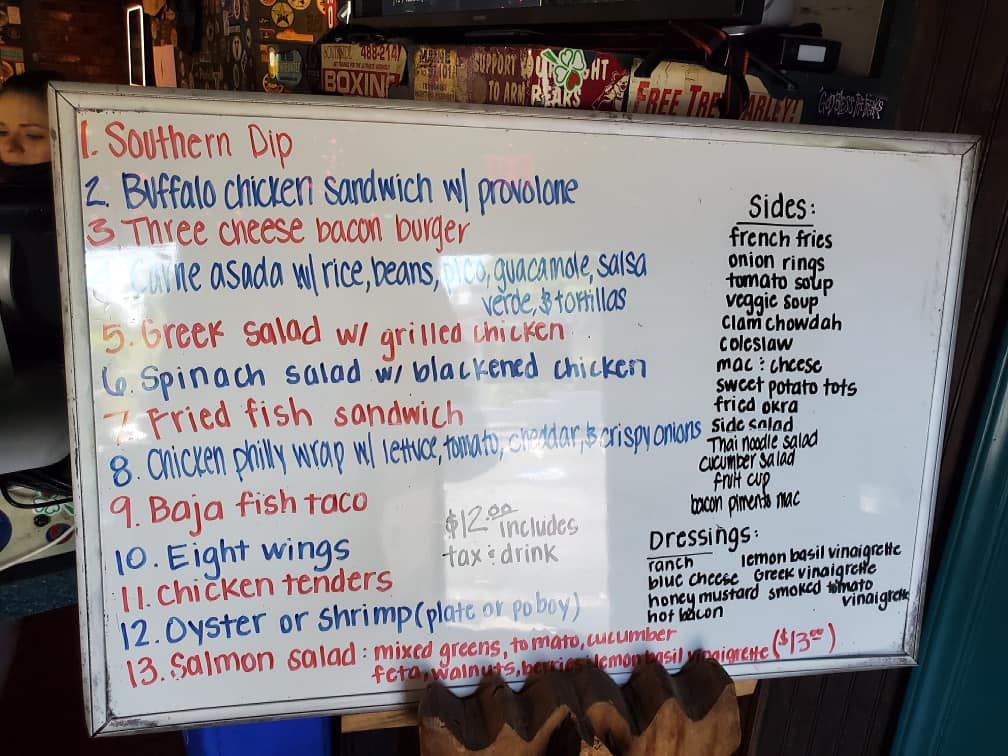 488-2141
BOXING
SUPPORT
HT
TO ARM BEARS
FREE
1. Southern Dip
2. Buffalo chicken sandwich w/ provolone
3. Three cheese bacon burger
Carne asada w/ rice, beans, pico, guacamole, salsa
verde, & tortillas
5. Greek salad w/ grilled chicken
6. Spinach salad w/ blackened chicken
7. Fried fish sandwich
8. Chicken philly wrap w/ lettuce, tomato, cheddar, & crispy onions
9. Baja fish taco
10. Eight wings
11. Chicken tenders
12. Oyster or shrimp (plate or poboy)
13. Salmon salad: mixed greens, tomato, cucumber
feta, walnuts, berries, lemon basil vinaigrette ($13.00)
$12.00 includes
tax & drink
Sides:
french fries
onion rings
tomato soup
veggie soup
clam chowdah
coleslaw
mac & cheese
sweet potato tots
fried okra
Side salad
Thai noodle salad
cucumber salad
fruit cup
bacon pimento mac
Dressings:
ranch
blue cheese
honey mustard
hot bacon
lemon basil vinaigrette
Greek vinaigrette
smoked tomato
vinaigrette